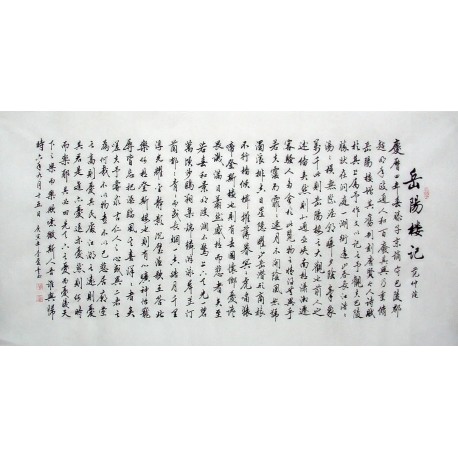 岳陽樓記 范仲淹
慶曆四年春滕子京謫守巴陵郡
越明年政通人和百廢具興乃重修
岳陽樓增其舊制刻唐賢今人詩賦
於其上屬予作文以記之予觀夫巴陵
勝狀在洞庭一湖銜遠山吞長江浩浩
湯湯橫無際涯朝暉夕陰氣象
萬千此則岳陽樓之大觀也前人之
述備矣然則北通巫峽南極瀟湘遷
客騷人多會於此覽物之情得無異乎
若夫霪雨霏霏連月不開陰風怒號
濁浪排空日星隱耀山岳潛形商旅
不行檣傾楫摧薄暮冥冥虎嘯猿
啼登斯樓也則有去國懷鄉憂讒
畏譏滿目蕭然感極而悲者矣至
若春和景明波瀾不驚上下天光一碧
萬頃沙鷗翔集錦鱗游泳岸芷汀
蘭郁郁青青而或長煙一空皓月千里
浮光耀金靜影沉璧漁歌互答此
樂何極登斯樓也則有心曠神怡寵
辱皆忘把酒臨風其喜洋洋者矣
嗟夫予嘗求古仁人之心或異二者之
為何哉不以物喜不以己悲居廟堂
之高則憂其民處江湖之遠則憂
其君是進亦憂退亦憂然則何時
而樂耶其必曰先天下之憂而憂後天
下之樂而樂歟噫微斯人吾誰與歸
時六年九月十五日